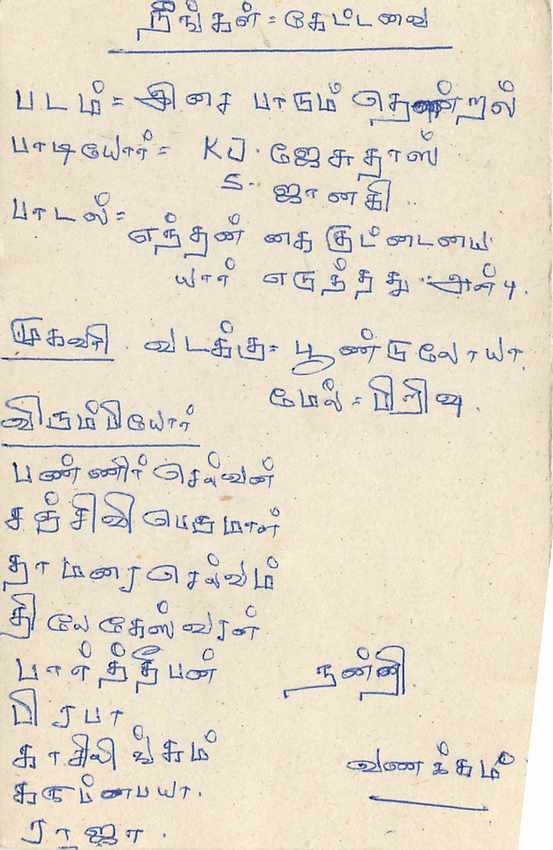 நீங்கள் = கேட்டவை
படம் = இசை பாடும் தென்றல்
பாடியோர் = KJ. ஜேசுதாஸ்
S. ஜானகி.
பாடல் =
எந்தன் கை குட்டையை
யார் எடுத்தது அன்பு.
முகவரி. வடக்கு = பூண்டுலோயா.
மேல் = பிறிவு.
விரும்பியோர்
பண்ணிர் செல்வன்
சஞ்சிவி பெருமாள்
தாமரை செல்வம்
தி லேகேஸ்வரன்
பார்த்தீபன்
நன்றி.
பிரபா
காசிலிங்கம்
வணக்கம்
கருப்பையா.
ராஜா.